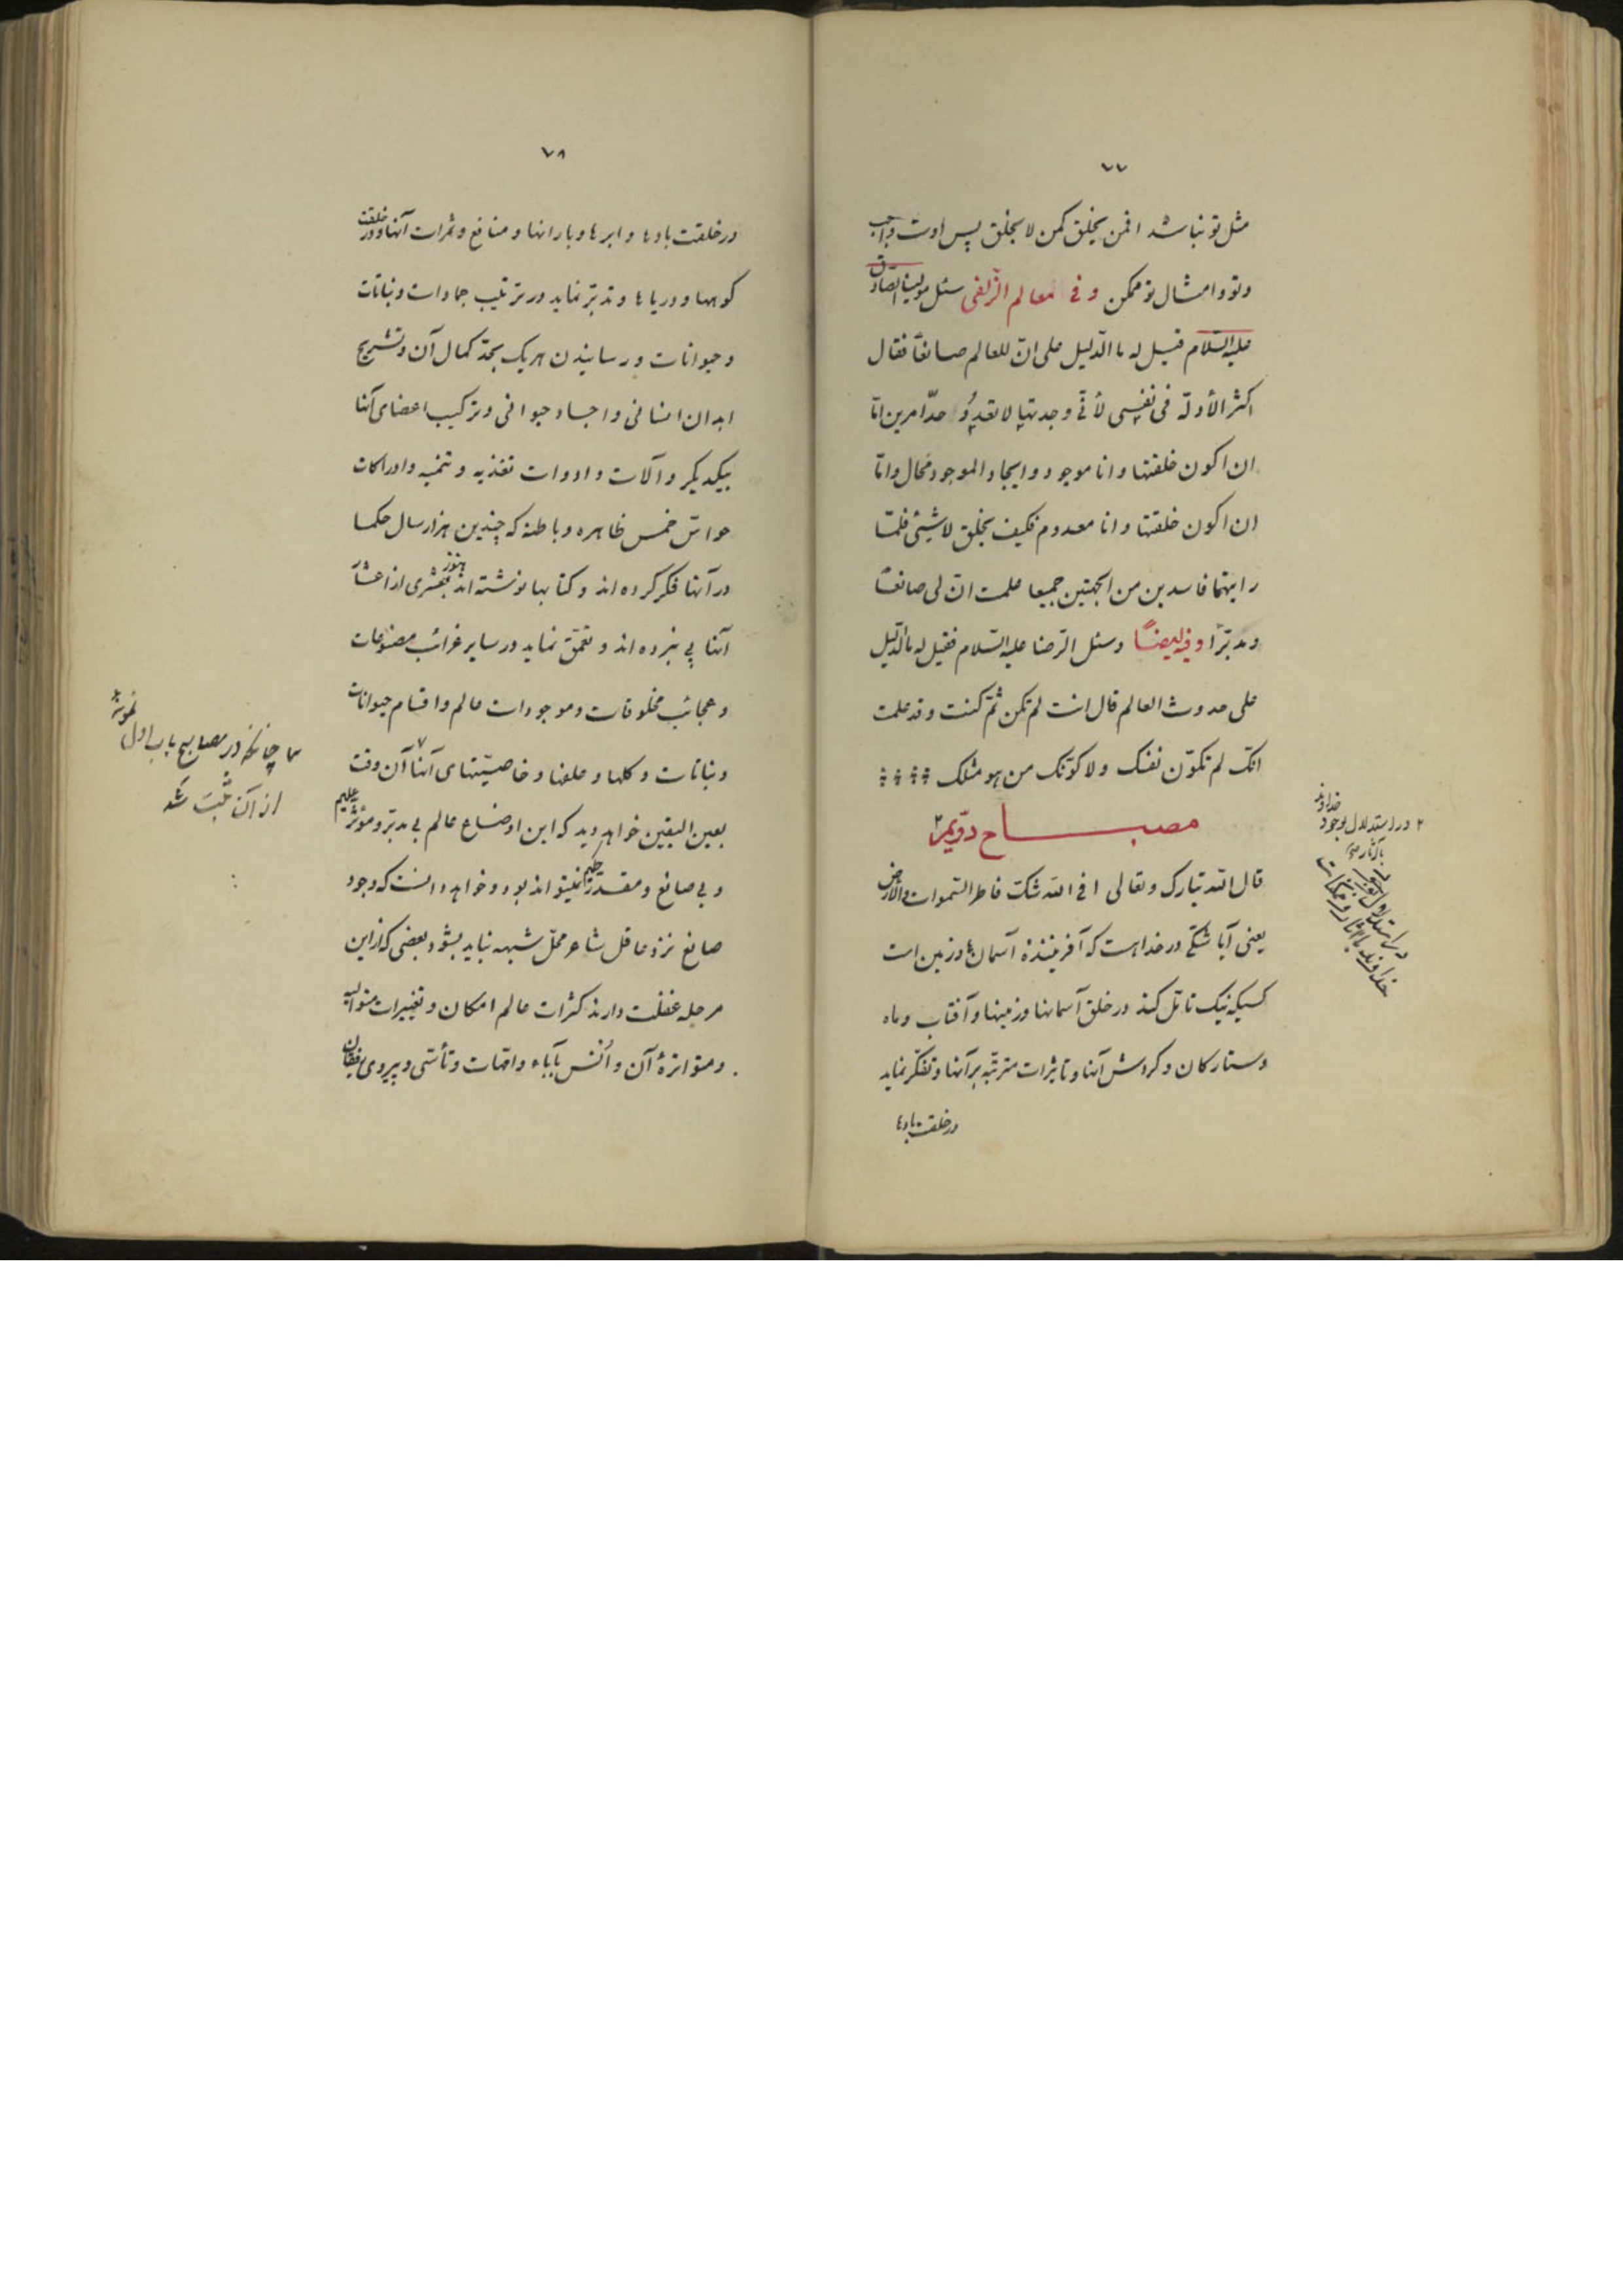 ٧٧
مثل تو نباشد افمن یخلق کمن لا یخلق پس اوست واجب
وتو و امثال تو ممکن و فی معالم الزلفی سئل مولینا الصادق
علیه السلام قیل له ما الدلیل علی انّ للعالم صانعاً فقال
اکثر الأدلّة فی نفسی لأنّی وجدتها لا تعدو احدّ امرین امّا
ان اکون خلقتها و انا موجود و ایجاد الموجود مُحال و امّا
ان اکون خلقتها و انا معدوم فکیف یخلق لا شیئی فلمّا
رایتهما فاسدین من الجهتین جمیعا علمت انّ لی صانعاً
و مدبّرًا و فیه ایضاً و سئل الرضا علیه السّلام فقیل له ما الدّلیل
علی حدوث العالم قال انت لم تکن ثمّ کنت و قد علمت
انّک لم تکوّن نفسک و لا کوّنک من هو مثلک
مصباح دوّیم ٢
قال الله تبارک و تعالی افی الله شکّ فاطر السّموات و الأرض
یعنی آیا شکّی در خداست که آفریننده آسمان ها و زمین است
کسیکه نیک تامّل کند در خلق آسمانها و زمینها و آفتاب و ماه
و ستارکان و کردش آنها و تاثیرات مترتّبه بر آنها و تفکّر نماید
در خلقت بادها
٢ در استدلال بوجود
خداوند
در استدلال بوجود
خداوند با آثار و ممکنات
٧٨
در خلقت بادها و ابرها و بارانها و منافع و ثمرات آنها و در خلقت
کوهها و دریاها و تدبّر نماید در ترتیب جمادات و نباتات
و حیوانات و رسانیدن هر یک بحدّ کمال آن و تشریح
ابدان انسانی و اجساد حیوانی و ترکیب اعضای آنها
بیکدیکر و آلات و ادوات تغذیه و تنمیه و ادراکات
حواسّ خمس ظاهره و باطنه که چندین هزار سال حکما
در آنها فکر کرده اند و کتابها نوشته اند هنوز بعشری از اعشار
آنها پی نبرده اند و تعمّق نماید در سایر غرائب مصنوعات
و عجائب مخلوقات و موجودات عالم و اقسام حیوانات
و نباتات و کلها و علفها و خاصیّتهای آنها ٧ آن وقت
بعین الیقین خواهد دید که این اوضاع عالم بی مدبّر و مؤثّر علیم
و بی صانع و مقدّر حکیم نمیتواند بود و خواهد دانست که وجود
صانع نزد عاقل شاعر محلّ شبهه نباید بشود بعضی که از این
مرحله غفلت دارند کثرات عالم امکان و تغییرات متوالیه
و متواترهٔ آن و اُنس بآباء و امّهات و تأسّی و پیروی رفیقان
چنانکه در مصابیح باب اول نمونهٔ
از آن ثبت شد